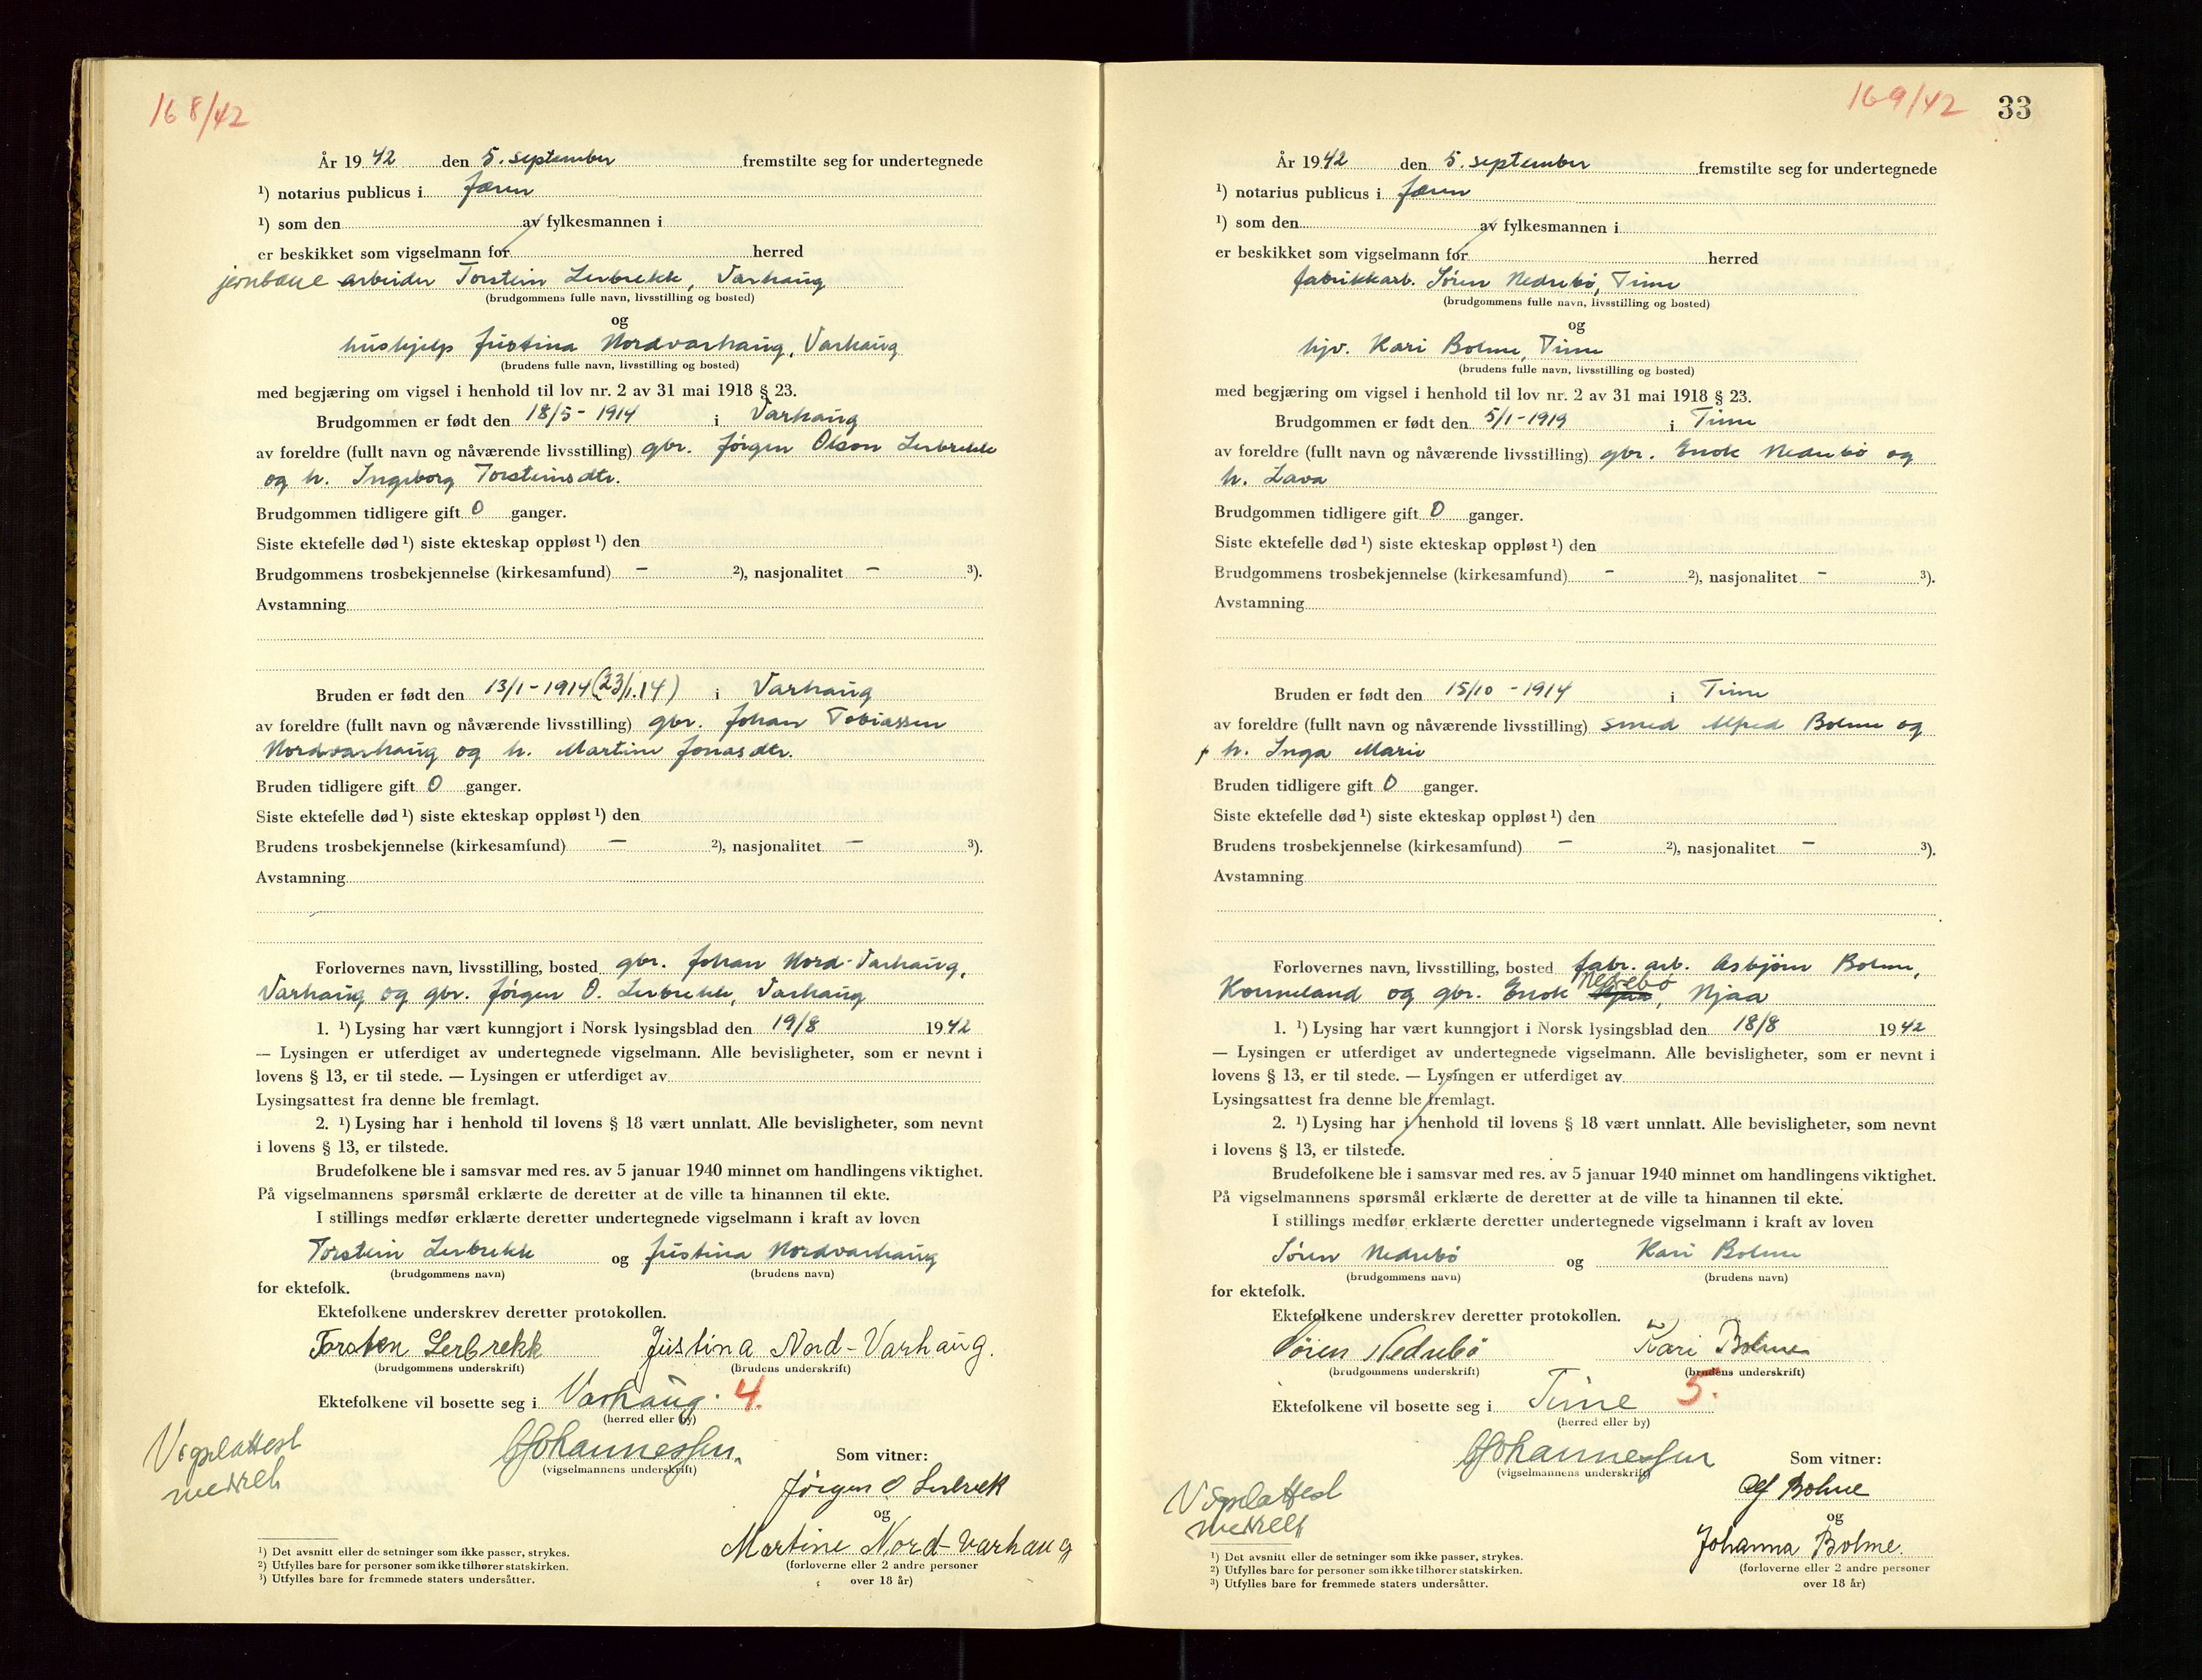 168/42
År 1942 den 5. september fremstilte seg for undertegnede
¹) notarius publicus i Jæren
¹) som den av fylkesmannen i
er beskikket som vigselmann for herred
jernbane arbeider Torstein Lerbrekk, Varhaug
(brudgommens fulle navn, livsstilling og bosted)
og
hushjelp Justina Nordvarhaug, Varhaug
(brudens fulle navn, livsstilling og bosted)
med begjæring om vigsel i henhold til lov nr. 2 av 31 mai 1918 § 23.
Brudgommen er født den 18/5-1914 i Varhaug
av foreldre (fullt navn og nåværende livsstilling) gbr. Jørgen Olson Lerbrekk
og h. Ingeborg Torsteinsdtr.
Brudgommen tidligere gift 0 ganger.
Siste ektefelle død ¹) siste ekteskap oppløst ¹) den
Brudgommens trosbekjennelse (kirkesamfund) - ²), nasjonalitet - ³).
Avstamning
Bruden er født den 13/1-1914 (23/1.14) i Varhaug
av foreldre (fullt navn og nåværende livsstilling) gbr. Johan Tobiassen
Nordvarhaug og h. Martine Jonasdtr.
Bruden tidligere gift 0 ganger.
Siste ektefelle død ¹) siste ekteskap oppløst ¹) den
Brudens trosbekjennelse (kirkesamfund) - ²), nasjonalitet - ³).
Avstamning
Forlovernes navn, livsstilling, bosted gbr. Johan Nord-Varhaug,
Varhaug og gbr. Jørgen O. Lerbrekk, Varhaug
1. ¹) Lysing har vært kunngjort i Norsk lysingsblad den 19/8 1942
— Lysingen er utferdiget av undertegnede vigselmann. Alle bevisligheter, som er nevnt i
lovens § 13, er til stede. — Lysingen er utferdiget av
Lysingsattest fra denne ble fremlagt.
2. ¹) Lysing har i henhold til lovens § 18 vært unnlatt. Alle bevisligheter, som nevnt
i lovens § 13, er tilstede.
Brudefolkene ble i samsvar med res. av 5 januar 1940 minnet om handlingens viktighet.
På vigselmannens spørsmål erklærte de deretter at de ville ta hinannen til ekte.
I stillings medfør erklærte deretter undertegnede vigselmann i kraft av loven
Torstein Lerbrekk og Justina Nordvarhaug
(brudgommens navn) (brudens navn)
for ektefolk.
Ektefolkene underskrev deretter protokollen.
Torsten Lerbrekk Justina Nord-Varhaug.
(brudgommens underskrift) (brudens underskrift)
Ektefolkene vil bosette seg i Varhaug. 4.
(herred eller by)
Vigselattest
meddelt
Johannessen.
(vigselmannens underskrift)
Som vitner:
Jørgen O Lerbrek
og
Martine Nord-Varhaug
(forloverne eller 2 andre personer
over 18 år)
¹) Det avsnitt eller de setninger som ikke passer, strykes.
²) Utfylles bare for personer som ikke tilhører statskirken.
³) Utfylles bare for fremmede staters undersåtter.
169/42 33
År 1942 den 5. september fremstilte seg for undertegnede
¹) notarius publicus i Jæren
¹) som den av fylkesmannen i
er beskikket som vigselmann for herred
fabrikkarb. Søren Nedrebø, Time
(brudgommens fulle navn, livsstilling og bosted)
og
hjv. Kari Bolme, Time
(brudens fulle navn, livsstilling og bosted)
med begjæring om vigsel i henhold til lov nr. 2 av 31 mai 1918 § 23.
Brudgommen er født den 5/1-1919 i Time
av foreldre (fullt navn og nåværende livsstilling) gbr. Enok Nedrebø og
h. Lava
Brudgommen tidligere gift 0 ganger.
Siste ektefelle død ¹) siste ekteskap oppløst ¹) den
Brudgommens trosbekjennelse (kirkesamfund) - ²), nasjonalitet - ³).
Avstamning
Bruden er født den 15/10-1914 i Time
av foreldre (fullt navn og nåværende livsstilling) smed Alfred Bolme og
h. Inga Marie
Bruden tidligere gift 0 ganger.
Siste ektefelle død ¹) siste ekteskap oppløst ¹) den
Brudens trosbekjennelse (kirkesamfund) - ²), nasjonalitet - ³).
Avstamning
Forlovernes navn, livsstilling, bosted fabr. arb. Asbjørn Bolme,
Nedrebø
Kvernaland og gbr. Enok Njaa, Njaa
1. ¹) Lysing har vært kunngjort i Norsk lysingsblad den 18/8 1942
— Lysingen er utferdiget av undertegnede vigselmann. Alle bevisligheter, som er nevnt i
lovens § 13, er til stede. — Lysingen er utferdiget av
Lysingsattest fra denne ble fremlagt.
2. ¹) Lysing har i henhold til lovens § 18 vært unnlatt. Alle bevisligheter, som nevnt
i lovens § 13, er tilstede.
Brudefolkene ble i samsvar med res. av 5 januar 1940 minnet om handlingens viktighet.
På vigselmannens spørsmål erklærte de deretter at de ville ta hinannen til ekte.
I stillings medfør erklærte deretter undertegnede vigselmann i kraft av loven
Søren Nedrebø og Kari Bolme
(brudgommens navn) (brudens navn)
for ektefolk.
Ektefolkene underskrev deretter protokollen.
Søren Nedrebø Kari Bolme
(brudgommens underskrift) (brudens underskrift)
Ektefolkene vil bosette seg i Time 5.
(herred eller by)
Vigselattest
meddelt
Johannessen
(vigselmannens underskrift)
Som vitner:
Alf Bolme
og
Johanna Bolme.
(forloverne eller 2 andre personer
over 18 år)
¹) Det avsnitt eller de setninger som ikke passer, strykes.
²) Utfylles bare for personer som ikke tilhører statskirken.
³) Utfylles bare for fremmede staters undersåtter.